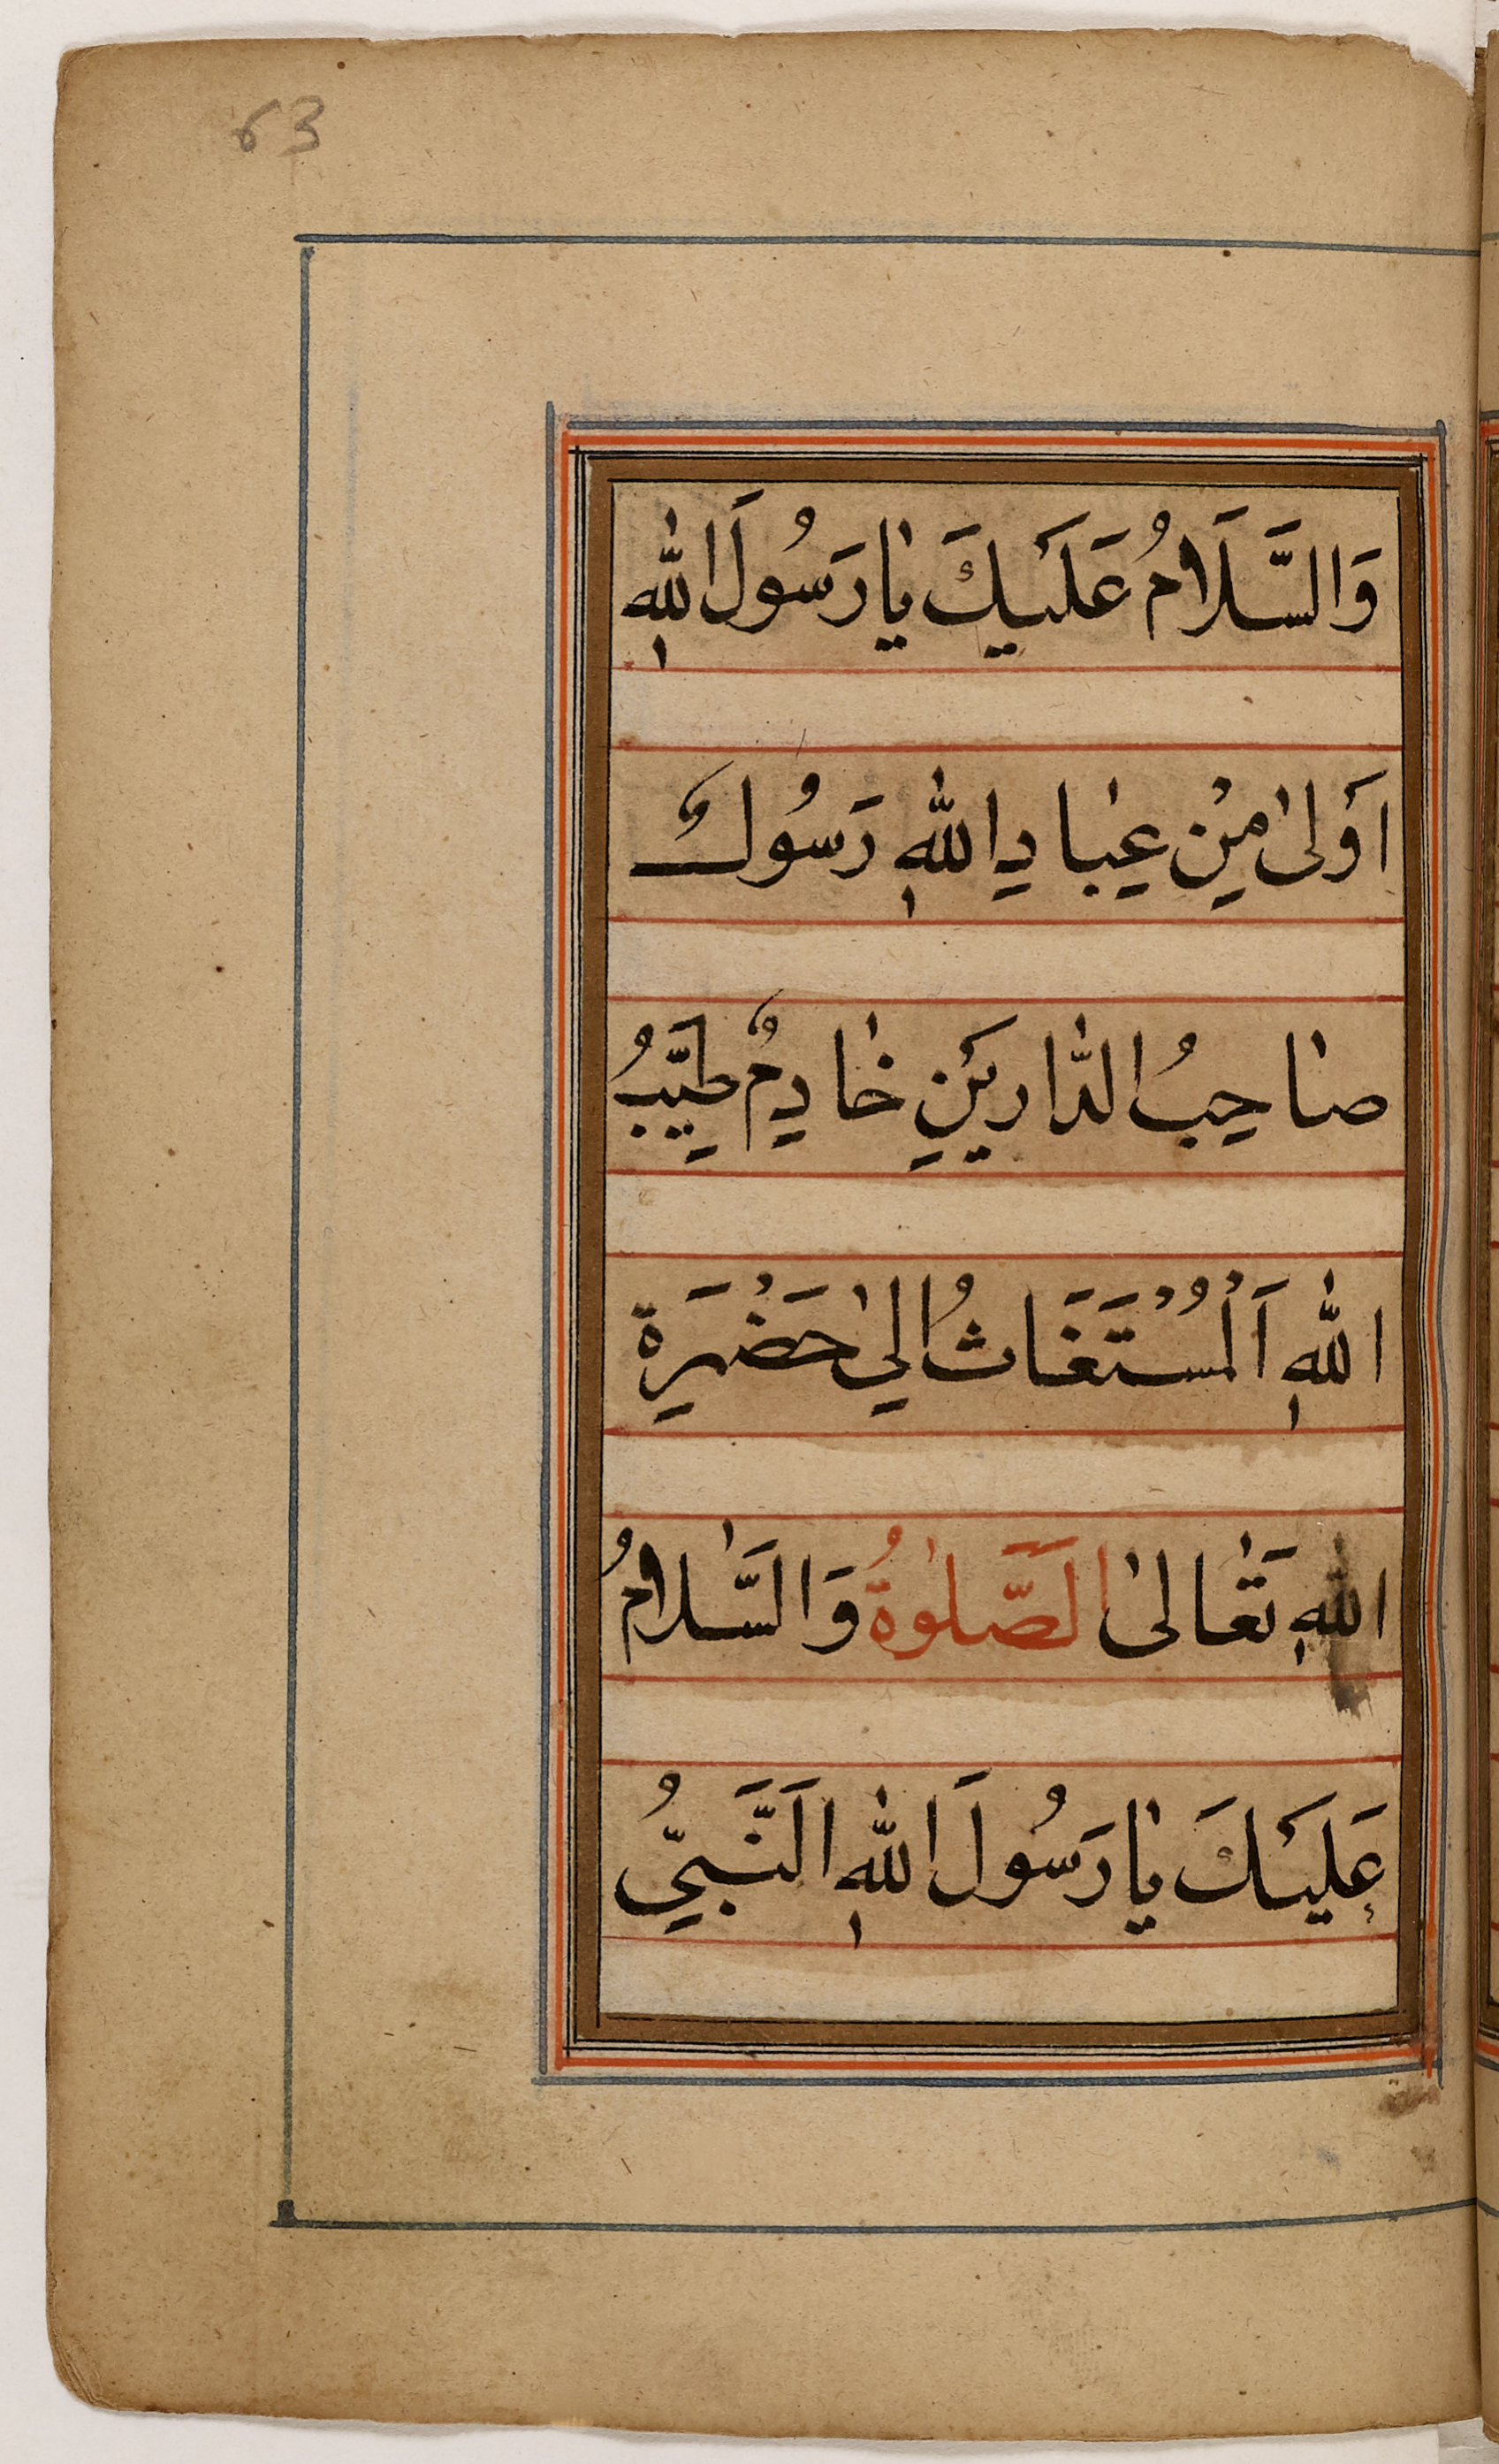 63
وَالسَّلَامُ عَلَيْكَ يٰارَسُولَ اللّٰهِ
اَوْلىٰ مِنْ عِبٰادِ اللّٰهِ رَسُولٌ
صٰاحِبُ الدّٰارَيْنِ خٰادِمٌ طَيِّبُ
اللّٰهِ اَلْمُسْتَغَاثُ اِلىٰ حَضْرَةِ
اللّٰهِ تَعٰالىٰ اَلصَّلٰوةُ وَالسَّلٰامُ
عَلَيْكَ يٰارَسُولَ اللّٰهِ اَلنَّبِيُّ